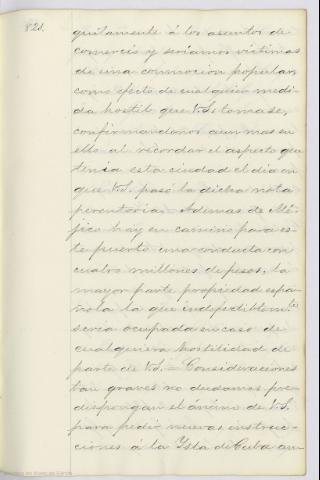 82d.
quilamente á los asuntos de
comercio y seriamos victimas
de una conmocion popular,
como efecto de cualquier medi-
da hostil que V.S. tomase,
confirmandonos aun mas en
ello al recordar el aspecto que
tenia esta ciudad el dia en
que V.S. pasó la dicha nota
perentoria. Ademas de Mé-
jico hay en camino para es-
te puerto una conducta con
cuatro millones de pesos, la
mayor parte propiedad espa-
ñola la que indefectiblem.te
seria ocupada en caso de
cualquiera hostilidad de
parte de V.S. = Consideraciones
tan graves no dudamos pre-
dispongan el ánimo de V.S.
para pedir nuevas instruc-
ciones á la Isla de Cuba aun